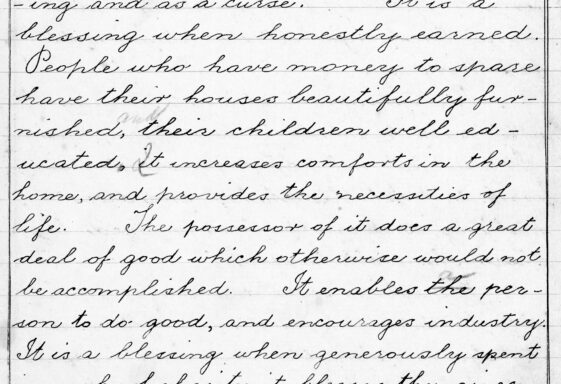 -ing and as a curse. It is a
blessing when honestly earned.
People who have money to spare
have their houses beautifully fur-
and
nished, their children well ed-
ucated, It increases comforts in the
home, and provides the necessities of
life. The possessor of it does a great
deal of good which otherwise would not
a
be accomplished. It enables the per-
son to do good, and encourages industry.
It is a blessing when generously spent